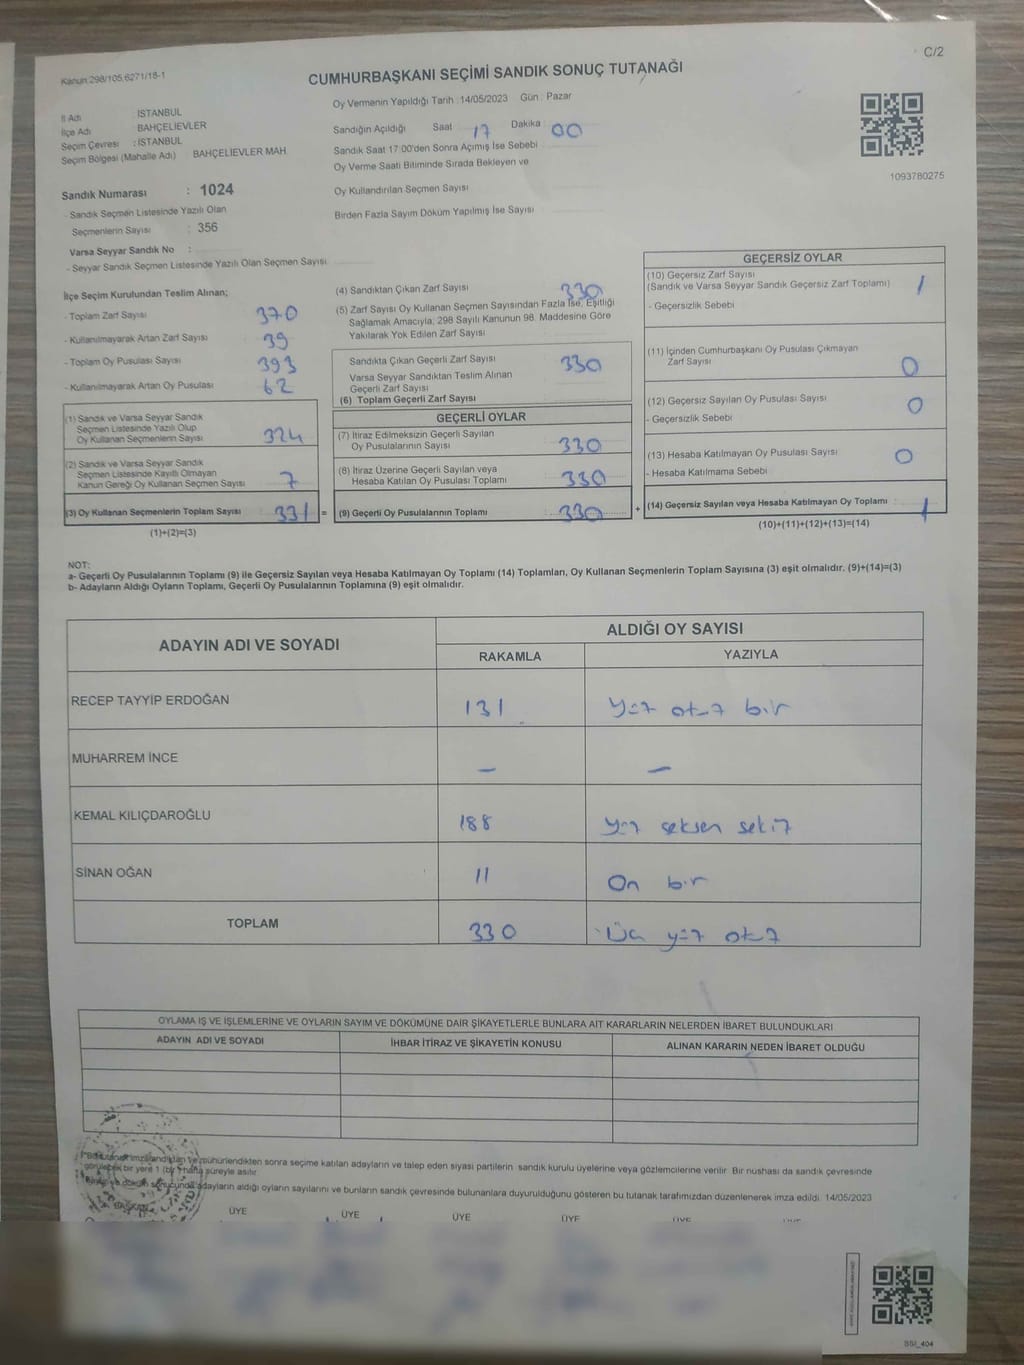 C/2
Kanun:298/105,6271/18-1
CUMHURBAŞKANI SEÇİMİ SANDIK SONUÇ TUTANAĞI
Oy Vermenin Yapıldığı Tarih : 14/05/2023 Gün : Pazar
İl Adı : İSTANBUL
İlçe Adı BAHÇELİEVLER
Seçim Çevresi : İSTANBUL
Seçim Bölgesi (Mahalle Adı) BAHÇELİEVLER MAH.
Sandığın Açıldığı Saat 17 Dakika : 00
Sandık Saat 17:00'den Sonra Açılmış İse Sebebi
Oy Verme Saati Bitiminde Sırada Bekleyen ve
Oy Kullandırılan Seçmen Sayısı
Birden Fazla Sayım Döküm Yapılmış İse Sayısı
1093780275
Sandık Numarası : 1024
- Sandık Seçmen Listesinde Yazılı Olan
Seçmenlerin Sayısı : 356
Varsa Seyyar Sandık No :
- Seyyar Sandık Seçmen Listesinde Yazılı Olan Seçmen Sayısı
İlçe Seçim Kurulundan Teslim Alınan;
- Toplam Zarf Sayısı 370
- Kullanılmayarak Artan Zarf Sayısı 39
- Toplam Oy Pusulası Sayısı 393
- Kullanılmayarak Artan Oy Pusulası 62
(1) Sandık ve Varsa Seyyar Sandık
Seçmen Listesinde Yazılı Olup
Oy Kullanan Seçmenlerin Sayısı 324
(2) Sandık ve Varsa Seyyar Sandık
Seçmen Listesinde Kayıtlı Olmayan
Kanun Gereği Oy Kullanan Seçmen Sayısı 7
(3) Oy Kullanan Seçmenlerin Toplam Sayısı 331 =
(1)+(2)=(3)
(4) Sandıktan Çıkan Zarf Sayısı 330
(5) Zarf Sayısı Oy Kullanan Seçmen Sayısından Fazla İse, Eşitliği
Sağlamak Amacıyla, 298 Sayılı Kanunun 98. Maddesine Göre
Yakılarak Yok Edilen Zarf Sayısı
Sandıkta Çıkan Geçerli Zarf Sayısı 330
Varsa Seyyar Sandıktan Teslim Alınan
Geçerli Zarf Sayısı
(6) Toplam Geçerli Zarf Sayısı
GEÇERLİ OYLAR
(7) İtiraz Edilmeksizin Geçerli Sayılan
Oy Pusulalarının Sayısı 330
(8) İtiraz Üzerine Geçerli Sayılan veya
Hesaba Katılan Oy Pusulası Toplamı 330
(9) Geçerli Oy Pusulalarının Toplamı 330 +
GEÇERSİZ OYLAR
(10) Geçersiz Zarf Sayısı
(Sandık ve Varsa Seyyar Sandık Geçersiz Zarf Toplamı) 1
- Geçersizlik Sebebi
(11) İçinden Cumhurbaşkanı Oy Pusulası Çıkmayan
Zarf Sayısı 0
(12) Geçersiz Sayılan Oy Pusulası Sayısı 0
- Geçersizlik Sebebi
(13) Hesaba Katılmayan Oy Pusulası Sayısı 0
- Hesaba Katılmama Sebebi
(14) Geçersiz Sayılan veya Hesaba Katılmayan Oy Toplamı 1
(10)+(11)+(12)+(13)=(14)
NOT:
a- Geçerli Oy Pusulalarının Toplamı (9) ile Geçersiz Sayılan veya Hesaba Katılmayan Oy Toplamı (14) Toplamları, Oy Kullanan Seçmenlerin Toplam Sayısına (3) eşit olmalıdır. (9)+(14)=(3)
b- Adayların Aldığı Oyların Toplamı, Geçerli Oy Pusulalarının Toplamına (9) eşit olmalıdır.
ADAYIN ADI VE SOYADI ALDIĞI OY SAYISI
RAKAMLA YAZIYLA
RECEP TAYYİP ERDOĞAN 131 yüz otuz bir
MUHARREM İNCE - -
KEMAL KILIÇDAROĞLU 188 yüz seksen sekiz
SİNAN OĞAN 11 On bir
TOPLAM 330 Üç yüz otuz
OYLAMA İŞ VE İŞLEMLERİNE VE OYLARIN SAYIM VE DÖKÜMÜNE DAİR ŞİKAYETLERLE BUNLARA AİT KARARLARIN NELERDEN İBARET BULUNDUKLARI
ADAYIN ADI VE SOYADI İHBAR İTİRAZ VE ŞİKAYETİN KONUSU ALINAN KARARIN NEDEN İBARET OLDUĞU
mühürlendikten sonra seçime katılan adayların ve talep eden siyasi partilerin sandık kurulu üyelerine veya gözlemcilerine verilir. Bir nüshası da sandık çevresinde
görülecek bir yere 1 (bir) hafta süreyle asılır.
adayların aldığı oyların sayılarını ve bunların sandık çevresinde bulunanlara duyurulduğunu gösteren bu tutanak tarafımızdan düzenlenerek imza edildi. 14/05/2023
BAŞKAN ÜYE ÜYE ÜYE ÜYE ÜYE